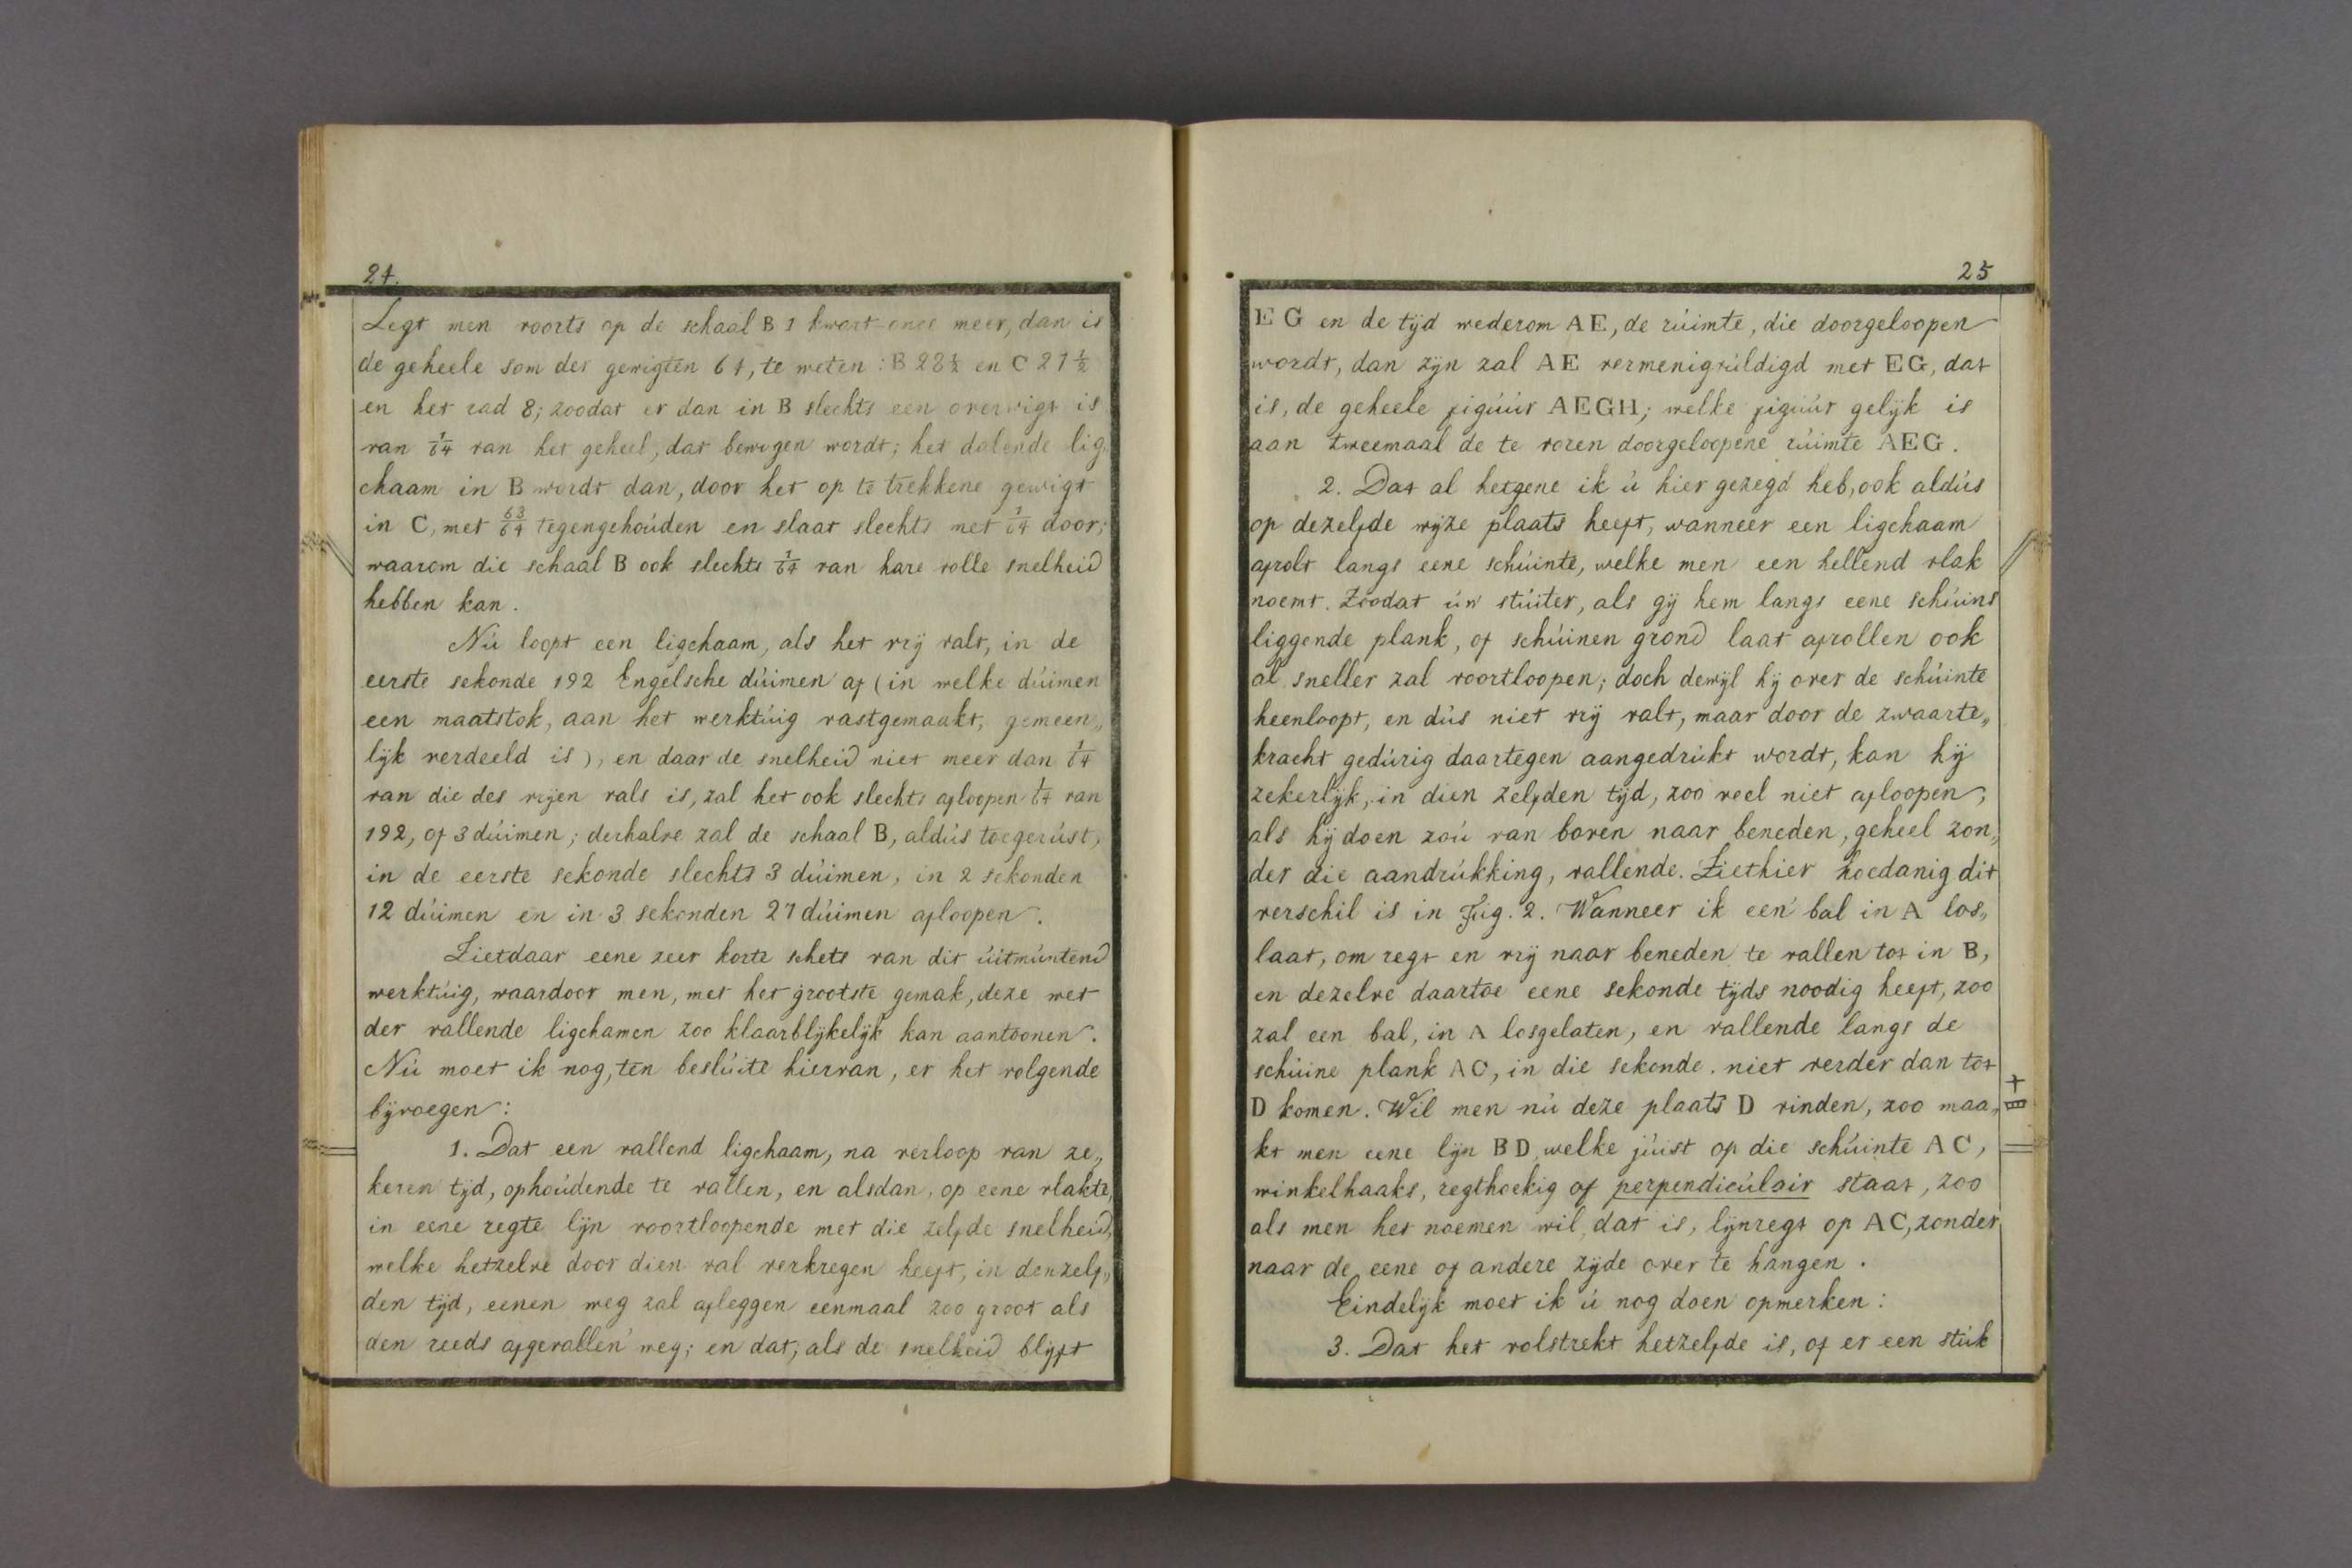 24.
Legt men voorts op de schaal B 1 kwart once meer, dan is
de geheele som der gewigten 64, te weten: B 28½ en C 27½
en het rad 8; zoodat er dan in B slechts een overwigt is
van 1/64 van het geheel, dat bewogen wordt; het dalende lig„
chaam in B wordt dan, door het op te trekkene gewigt
in C, met 63/64 tegengehouden en slaat slechts met 1/64 door;
waarom die schaal B ook slechts 1/64 van hare volle snelheid
hebben kan.
Nú loopt een ligchaam, als het vrij valt, in de
eerste sekonde 192 Engelsche dúimen af (in welke dúimen
een maatstok, aan het werktúig vastgemaakt, gemeen„
lijk verdeeld is), en daar de snelheid niet meer dan 1/64
van die des vrijen vals is, zal het ook slechts afloopen 1/64 van
192, of 3 dúimen; derhalve zal de schaal B, aldús toegerúst,
in de eerste sekonde slechts 3 dúimen, in 2 sekonden
12 dúimen en in 3 sekonden 27 dúimen afloopen.
Zietdaar eene zeer korte schets van dit úitmúntend
werktúig, waardoor men, met het grootste gemak, deze wet
der vallende ligchamen zoo klaarblijkelijk kan aantoonen.
Nú moet ik nog, ten beslúite hiervan, er het volgende
bijvoegen:
1. Dat een vallend ligchaam, na verloop van ze„
keren tijd, ophoúdende te vallen, en alsdan, op eene vlakte,
in eene regte lijn voortloopende met die zelfde snelheid,
welke hetzelve door dien val verkregen heeft, in denzelf„
den tijd, eenen weg zal afleggen eenmaal zoo groot als
den reeds afgevallen weg; en dat, als de snelheid blijft
25
EG en de tijd wederom AE, de rúimte, die doorgeloopen
wordt, dan zijn zal AE vermenigvúldigd met EG, dat
is, de geheele figúúr AEGH; welke figúúr gelijk is
aan tweemaal de te voren doorgeloopene rúimte AEG.
2. Dat al hetgene ik ú hier gezegd heb, ook aldús
op dezelfde wijze plaats heeft, wanneer een ligchaam
afrolt langs eene schúinte, welke men een hellend vlak
noemt. Zoodat úw stúiter, als gij hem langs eene schúins
liggende plank, of schúinen grond laat afrollen ook
al sneller zal voortloopen; doch dewijl hij over de schúinte
heenloopt, en dús niet vrij valt, maar door de zwaarte„
kracht gedúrig daartegen aangedrúkt wordt, kan hij
zekerlijk, in dien zelfden tijd, zoo veel niet afloopen,
als hij doen zoú van boven naar beneden, geheel zon„
der die aandrúkking, vallende. Ziethier hoedanig dit
verschil is in Fig. 2. Wanneer ik een bal in A los„
laat, om regt en vrij naar beneden te vallen tot in B,
en dezelve daartoe eene sekonde tijds noodig heeft, zoo
zal een bal, in A losgelaten, en vallende langs de
schúine plank AC, in die sekonde niet verder dan tot
D komen. Wil men nú deze plaats D vinden, zoo maa„
kt men eene lijn BD, welke júist op die schúinte AC,
winkelhaaks, regthoekig of perpendicúlair staat, zoo
als men het noemen wil, dat is, lijnregt op AC, zonder
naar de eene of andere zijde over te hangen.
Eindelijk moet ik ú nog doen opmerken:
3. Dat het volstrekt hetzelfde is, of er een stúk